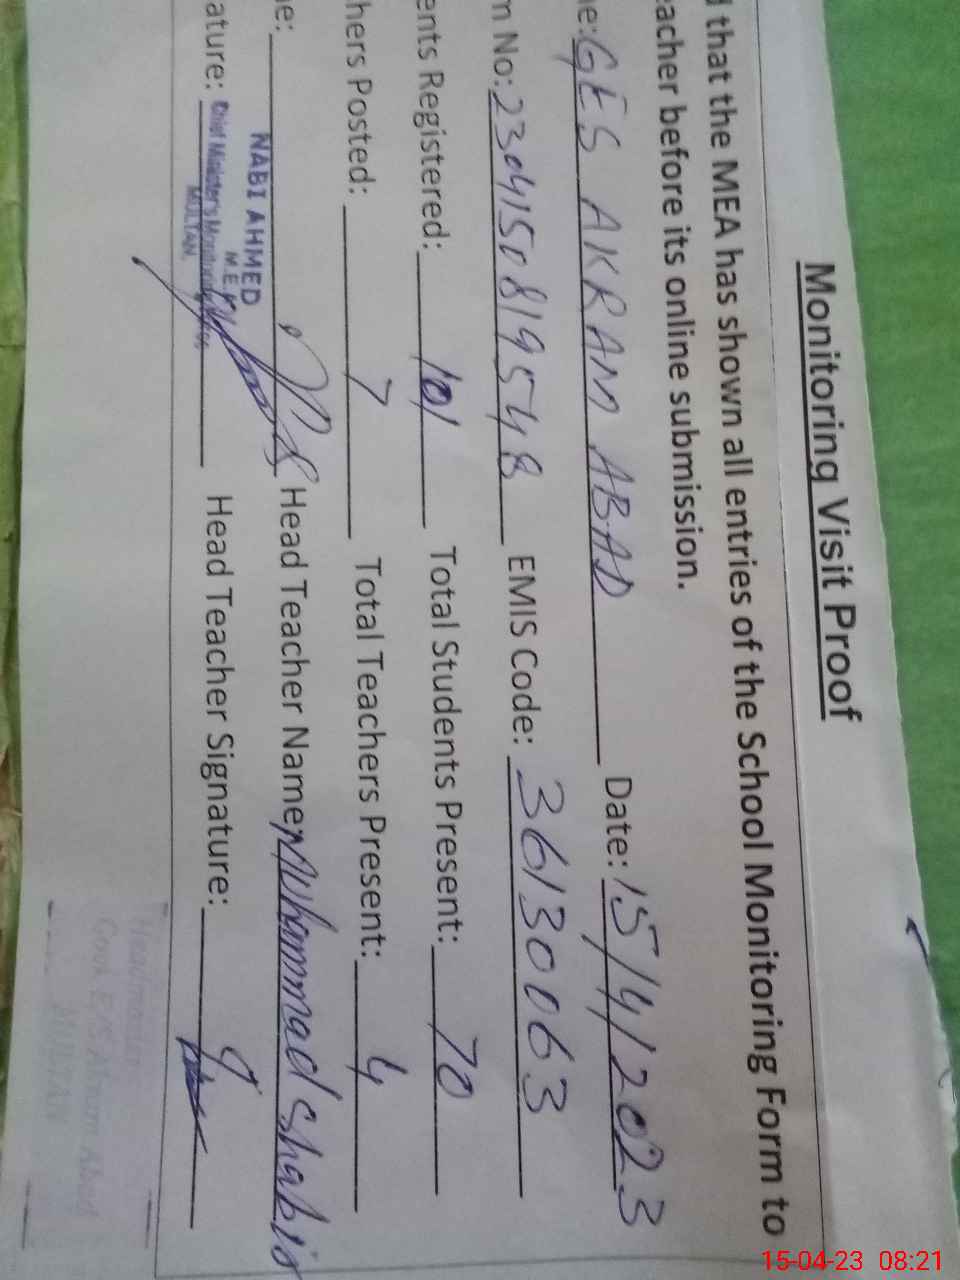 Monitoring Visit Proof
that the MEA has shown all entries of the School Monitoring Form to
eacher before its online submission.
e: GES AKRAM ABAD Date: 15/4/2023
m No: 2304150819548 EMIS Code: 36130063
ents Registered: 101 Total Students Present: 70
hers Posted: 7 Total Teachers Present: 4
e: Head Teacher Name: Muhammad Shabir
NABI AHMED
M.E.A
ature: Chief Minister's Monitoring Head Teacher Signature:
MULTAN
Headmaster
Govt. E/S Akram Abad
MULTAN
15-04-23 08:21